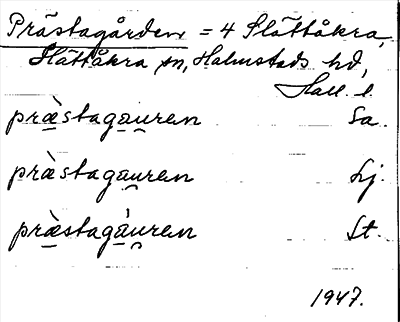 Prästagården = 4 Slättåkra,
Slättåkra sn, Halmstads hd,
Hall. l.
præ̀stagau̯ren Sa.
præ̀stagau̯ren Lj.
præ̀stagáu̯ren St.
1947.